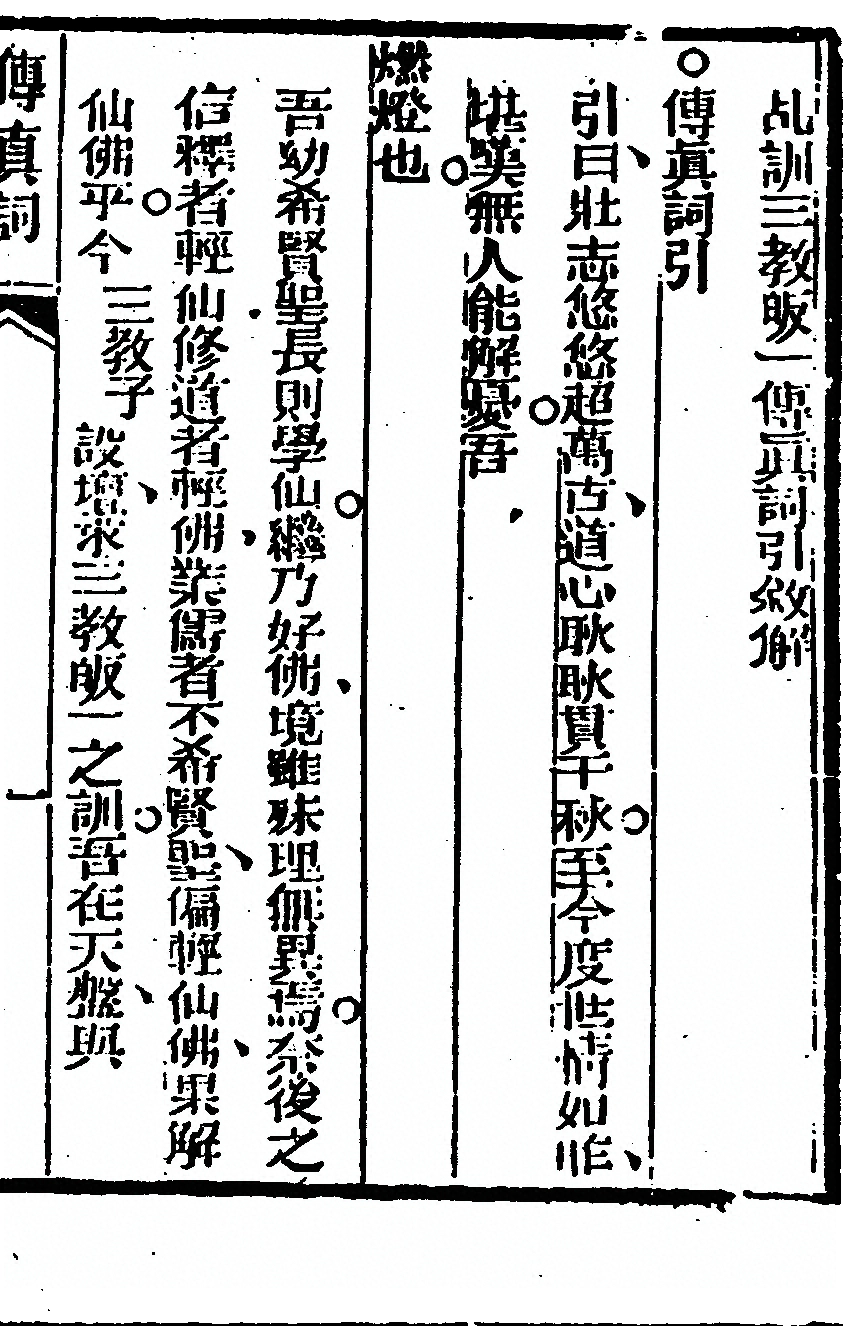 乩訓三教皈一傳真詞引後解
○傳眞詞引
引曰壯志悠悠超萬古道心耿耿貫千秋至今度世情如昨
堪嘆無人能解憂吾
燃燈也
吾幼希賢聖長則學仙繼乃好佛境雖殊理無異焉奈後之
信釋者輕仙修道者輕佛業儒者不希賢聖偏輕仙佛果解
仙佛乎今三教子設壇求三教皈一之訓吾在天盤與
傳眞詞
一